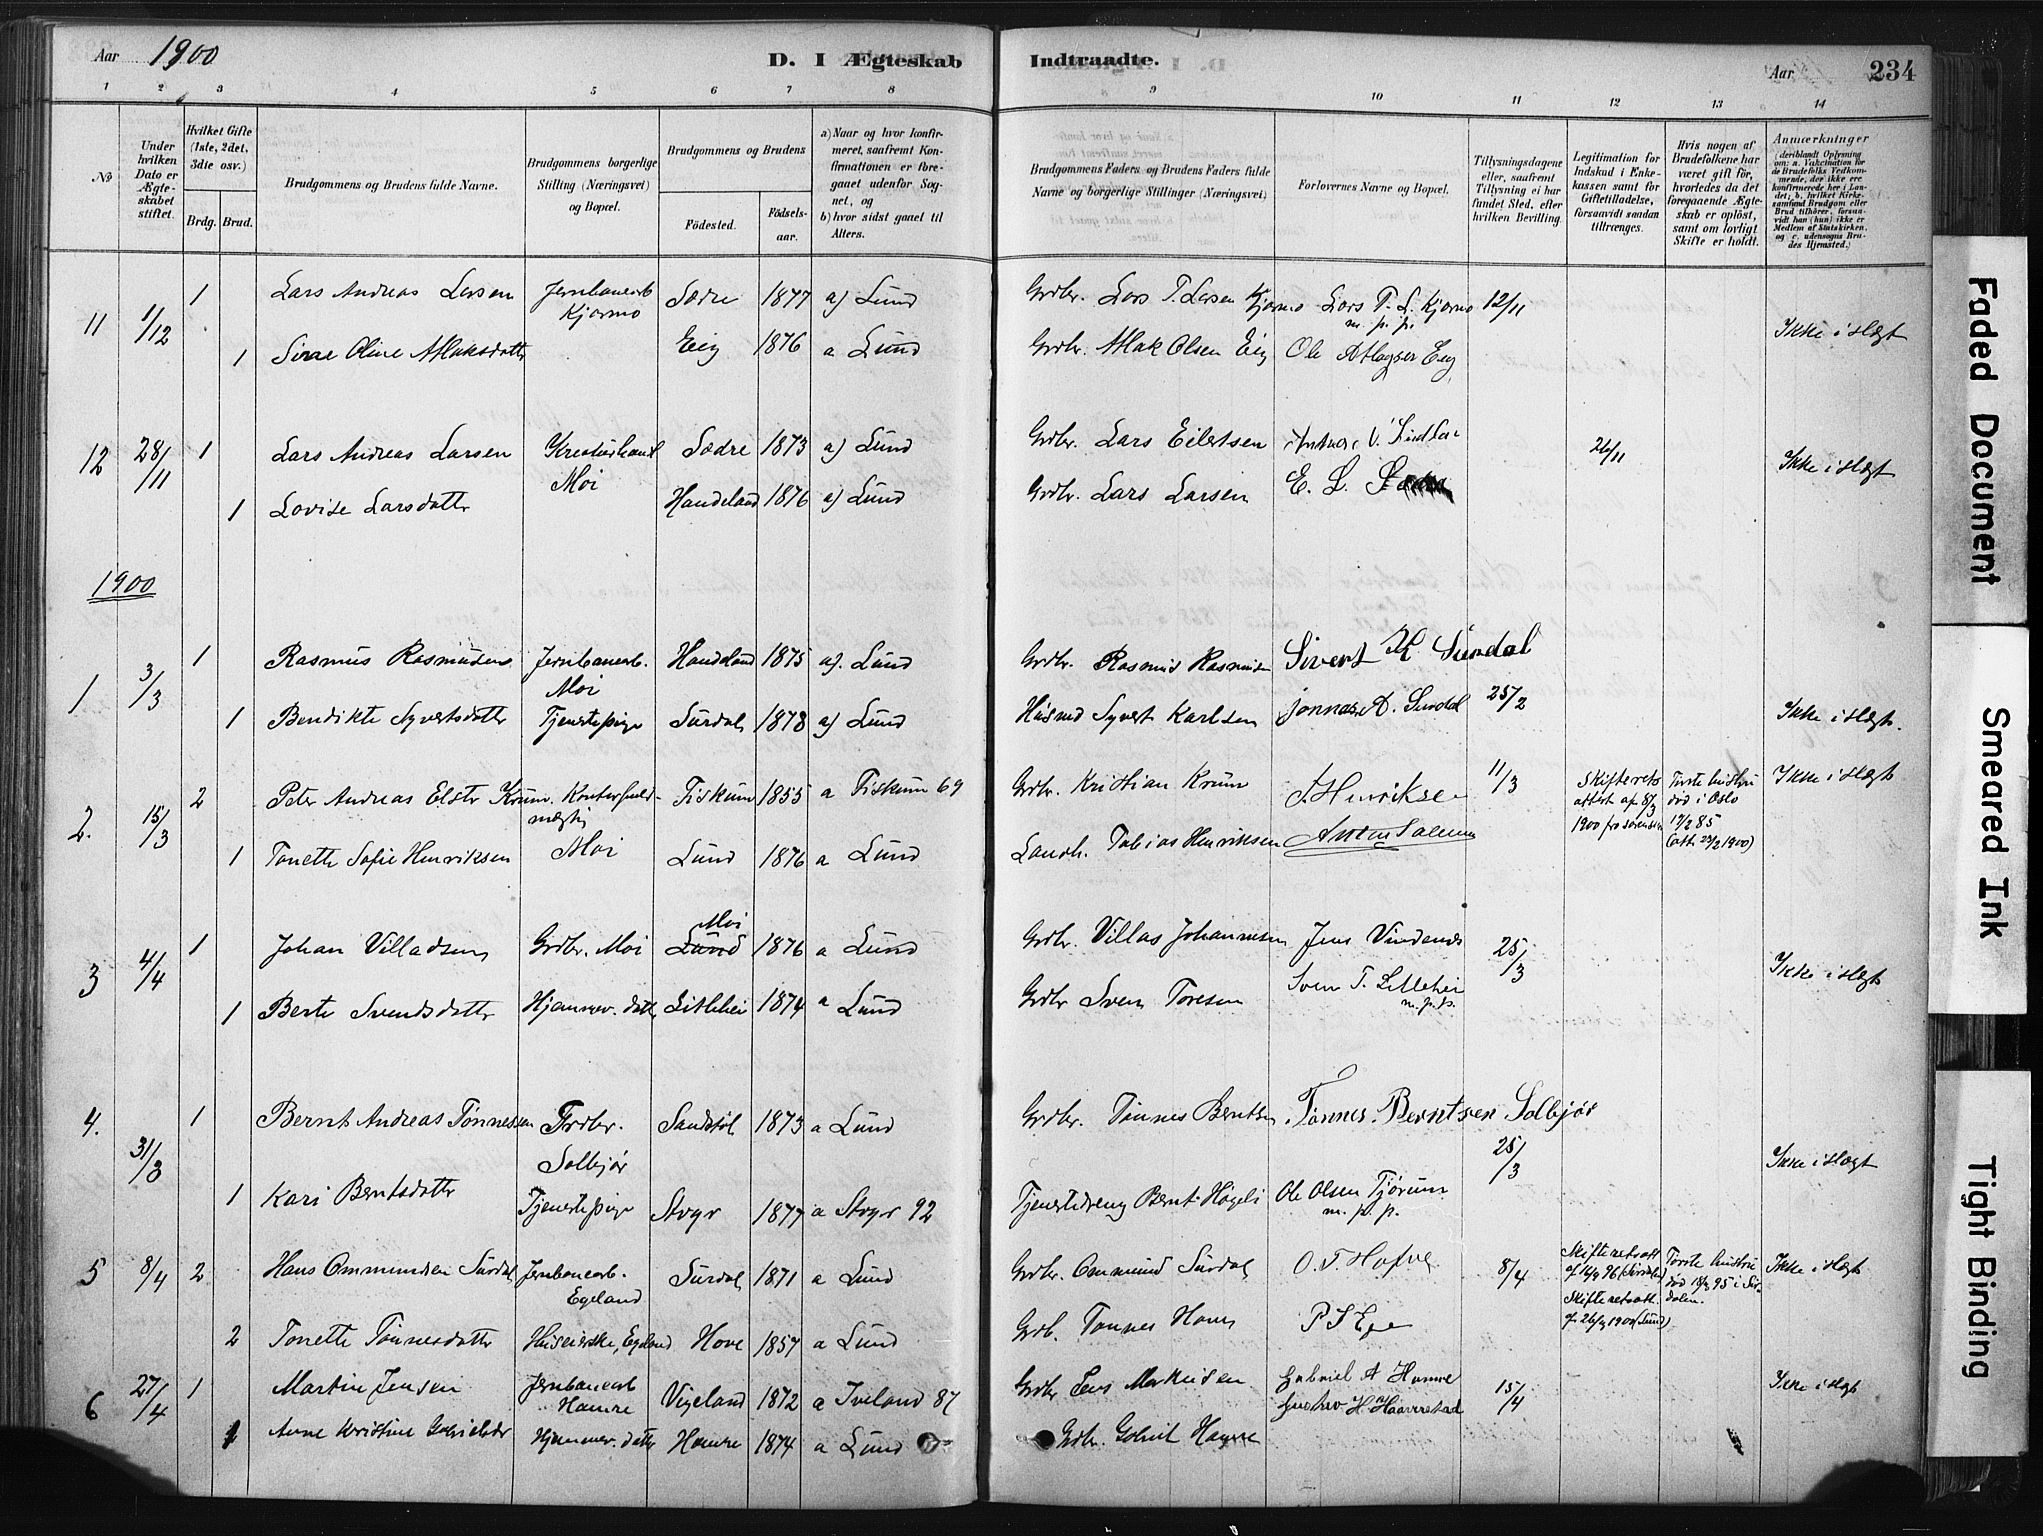 Aar 1900
D. I Ægteskab Indtraadte.
Aar 234
1 2 3 4 5 6 7 8 9 10 11 12 13 14
No
Under hvilken Dato er Ægteskabet stiftet.
Hvilket Gifte (1ste, 2det, 3die osv.)
Brdg. Brud.
Brudgommens og Brudens fulde Navne.
Brudgommens borgerlige Stilling (Næringsvei) og Bopæl.
Brudgommens og Brudens
Fødested.
Fødsels-aar.
a) Naar og hvor konfirmeret, saafremt Konfirmationen er foregaaet udenfor Sognet, og
b) hvor sidst gaaet til Alters.
Brudgommens Faders og Brudens Faders fulde Navne og borgerlige Stillinger (Næringsvei)
Forlovernes Navne og Bopæl.
Tillysningsdagene eller, saafremt Tillysning ei har fundet Sted, efter hvilken Bevilling.
Legitimation for Indskud i Enkekassen samt for Giftetilladelse, forsaavidt saadan tiltrænges.
Hvis nogen af Brudefolkene har været gift før, hvorledes da det foregaaende Ægteskab er opløst, samt om lovligt Skifte er holdt.
Anmærkninger (deriblandt Oplysning om: a. Vakcination for de Brudefolks Vedkommende, der ikke ere konfirmerede her i Landet; b. hvilket Kirkesamfund Brudgom eller Brud tilhører, forsaavidt han (hun) ikke er Medlem af Statskirken, og c. udensogns Brudes Hjemsted.)
11 1/12 1 Lars Andreas Larsen Jernbanearb. Kjørmo Sædre 1877 a) Lund Grdbr. Lars T. Larsen Kjørmo Lars T. L. Kjørmo m. p. p. 12/11
1 Sirre Oline Aflaksdatter Eig 1876 a Lund Grdbr. Aflak Olsen Eig Ole Eig Ikke i slægt
12 28/11 1 Lars Andreas Larsen Kreaturhandl Moi Sædre 1873 a) Lund Grdbr. Lars Eilertsen 26/11 Ikke i slægt
1 Lovise Larsdatter Handeland 1876 a) Lund Grdbr. Lars Larsen E. L.
1900
1 3/3 1 Rasmus Rasmussen Jernbanearb. Moi Handeland 1875 a). Lund Grdbr. Rasmus Rasmussen Sivert K Surdal
1 Bendikte Syvertsdatter Tjenestepige Surdal 1878 a) Lund Husmd Syvert Karlsen Jonnas A. Surdal 25/2 Ikke i slægt.
2. 15/3 2 Peter Andreas Elster Krum. Kontorfuldmægtig Moi Fiskum 1855 a Fiskum 69 Grdbr. Kristian Krum T Henriksen 11/3 Skifteretsattest af 8/3 1900 fra Sørensen Første hustru død i Oslo 17/2 85 (att. 27/2 1900) Ikke i slægt
1 Tonette Sofie Henriksen Lund 1876 a Lund Landh. Tobias Henriksen Anton Salem
3 4/4 1 Johan Villadsen Grdbr. Moi Lund Moi 1876 a Lund Grdbr. Villas Johannesen Jens Vindenes 25/3
1 Berte Svendsdatter Hjemmev. datter Litlehei 1874 a Lund Grdbr Sven Toresen Sven T. Lillehei m.p.p. Ikke i slægt
4. 31/3 1 Bernt Andreas Tønnessen Frdbr. Solbjør Sandstøl 1873 a Lund Grdbr. Tønnes Berntsen Tønnes Berntsen Solbjør 25/3
1 Kari Berntsdatter Tjenestepige Stvgr 1877 a Stvgr 92 Tjenestedreng Bernt Høgeli Ole Olsen Tjørum m. p. p. Ikke i slægt
5 8/4 2 Hans Ommundsen Surdal Jernbanearb. Egeland Surdal 1871 a Lund Grdbr. Ommund Surdal O. T Hofve 8/4 Skifteretsatt af 16/9 96 (Sirdalen) Skifteretsatt. af 26/3 1900 (Lund) Første hustru død 18/3 95 i Sirdalen. Ikke i slægt
2 Tonette Tønnesdatter Huseierske, Egeland Hove 1857 a Lund Grdb. Tønnes Hans
6 27/4 1 Martin Jensen Jernbanearb Hamre Vigeland 1872 a Iveland 87 Grdbr Jens Markusen Gabriel A Hamre 15/4 Ikke i slægt
1 Anne Kristine Gabrielsdr Hjemmev. datter Hamre 1874 a Lund Grdbr. Gabriel Hamre Gustav H Haaverstad
Faded Document
Smeared Ink
Tight Binding